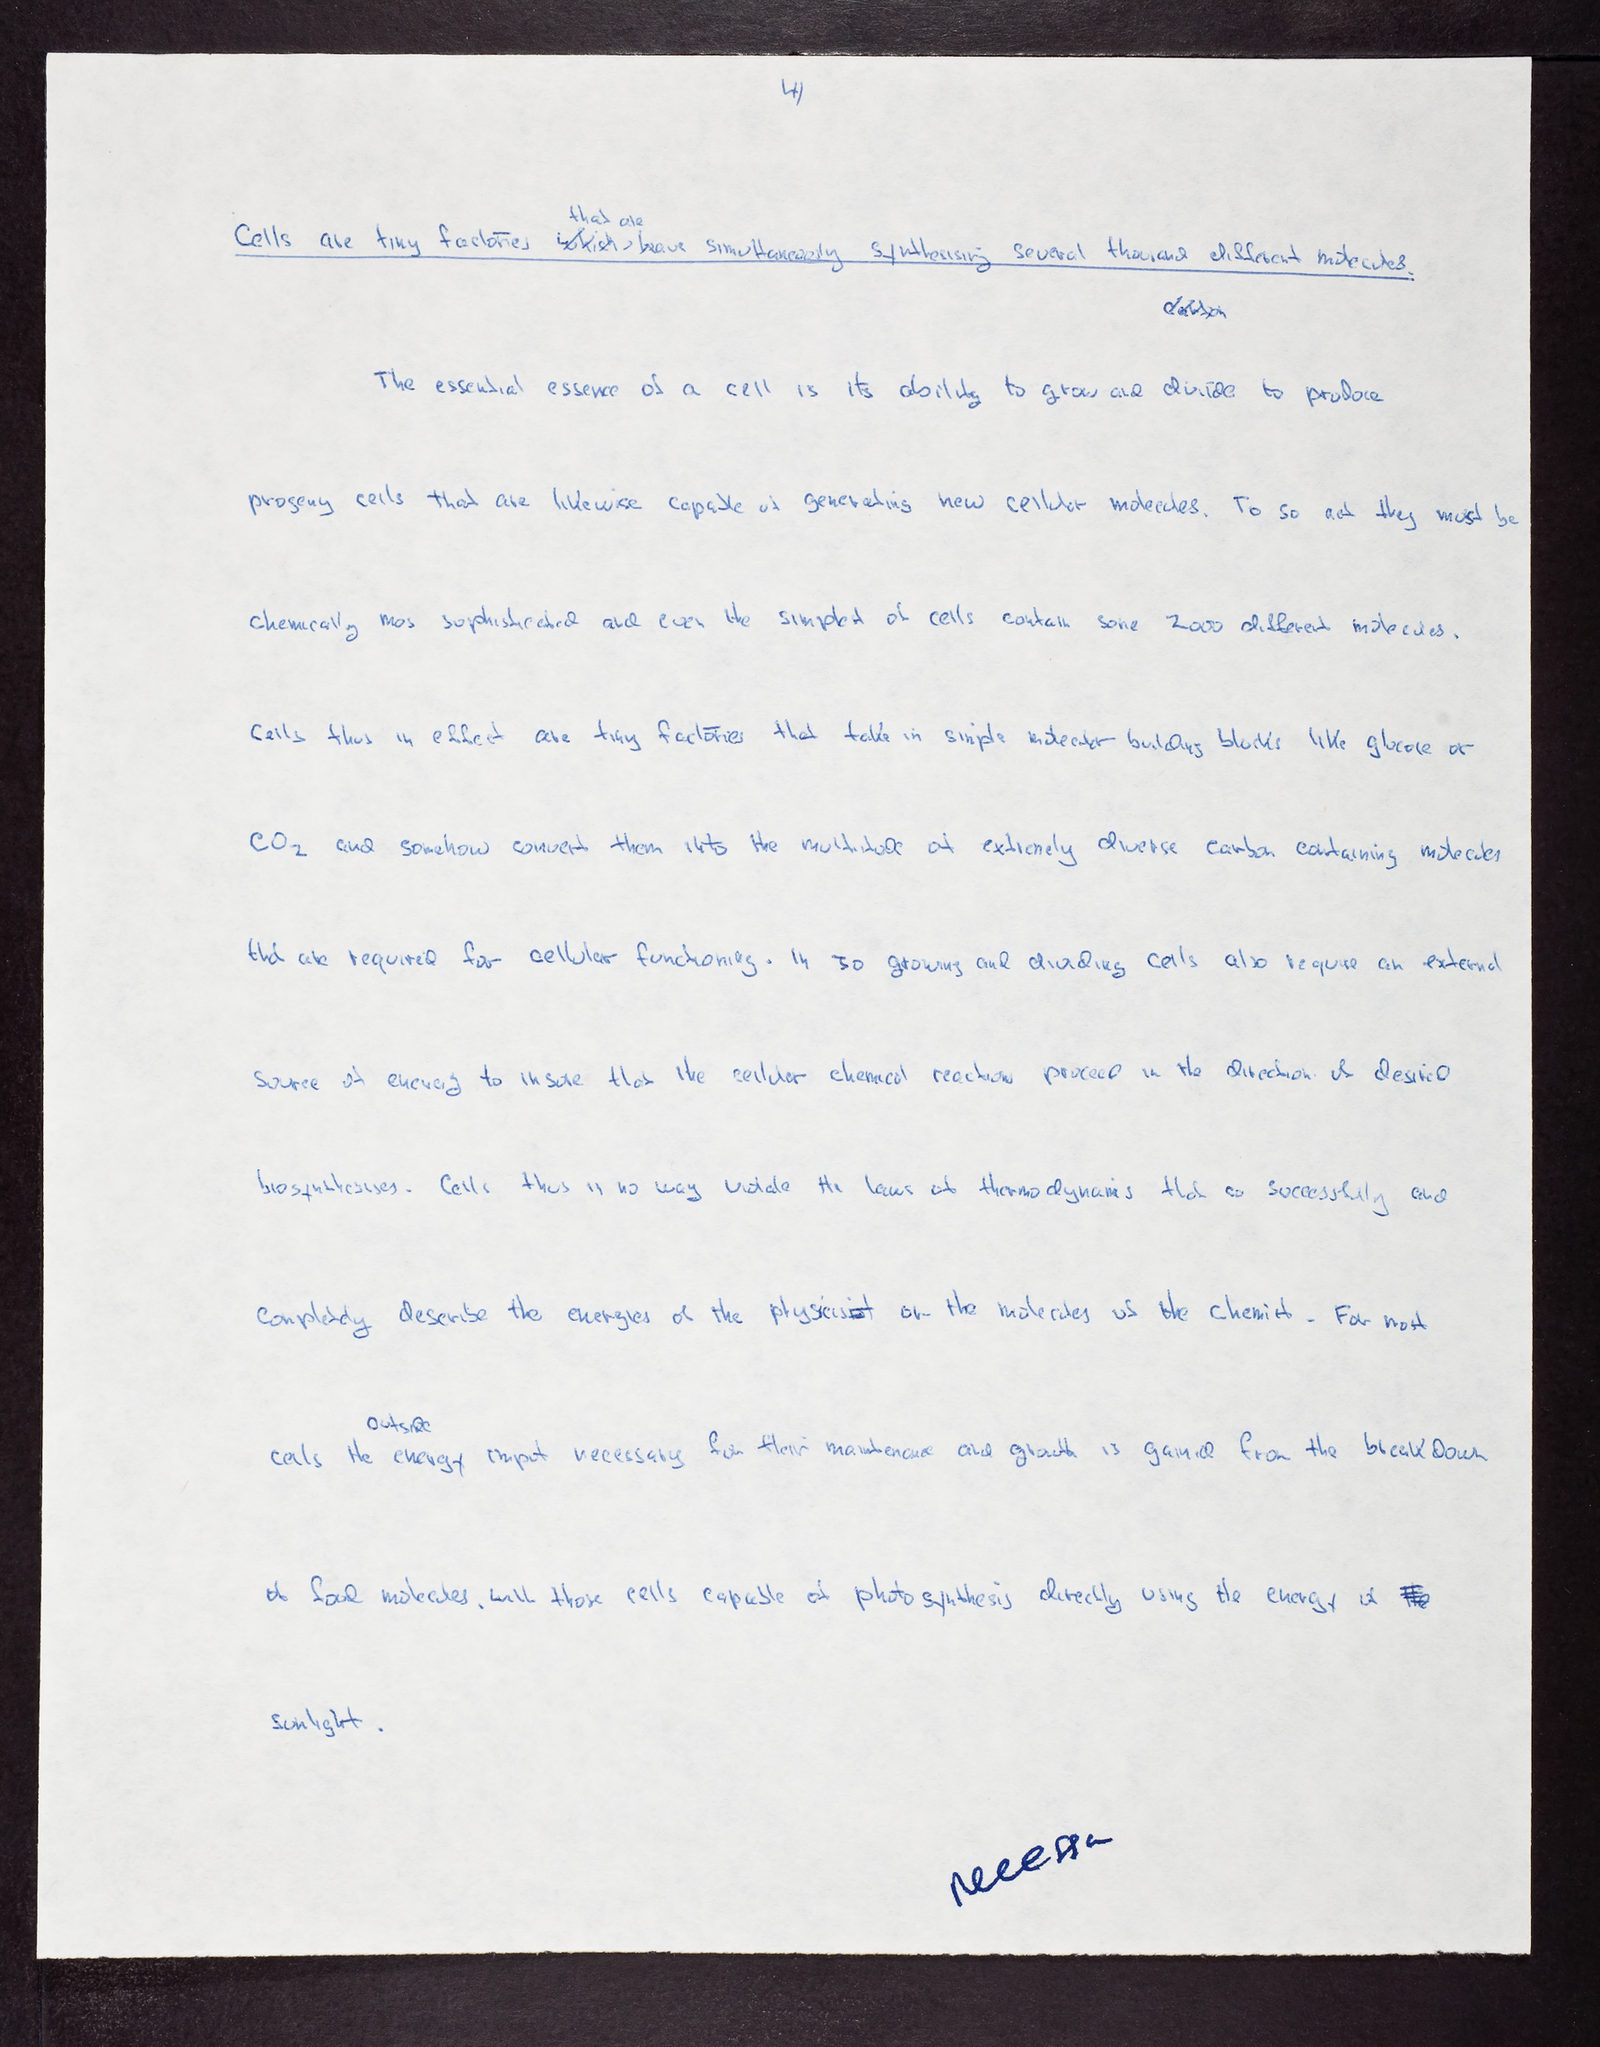 4)
that are
Cells are tiny factories which have simultaneously synthesising several thousand different molecules.
The essential essence of a cell is its ability to grow and divide to produce
progeny cells that are likewise capable of generating new cellular molecules. To so act they must be
chemically mos sophisticated and even the simplest of cells contain some 2000 different molecules.
Cells thus in effect are tiny factories that take in simple molecular building blocks like glucose or
CO2 and somehow convert them into the multitude of extremely diverse carbon containing molecules
that are required for cellular functioning. In so growing and dividing cells also require an external
source of energy to insure that the cellular chemical reactions proceed in the direction of desired
biosynthesises. Cells thus in no way violate the laws of thermodynamics that so successfully and
completely describe the energies of the physicist or the molecules of the chemist. For most
outside
cells the energy input necessary for their maintenance and growth is gained from the breakdown
of food molecules, with those cells capable of photosynthesis directly using the energy of the
sunlight.
necessa